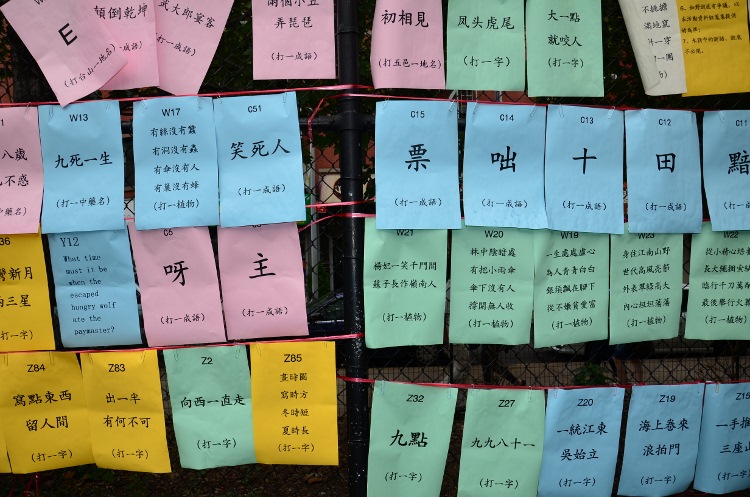 E
(打台山一地名)
顛倒乾坤
武大郎宴客
弄琵琶
(打一成語)
初相見
(打五邑一地名)
凤头虎尾
(打一字)
大一點
就咬人
(打一字)
不挑擔
滿地竄
W13
九死一生
(打一中藥名)
W17
有絲沒有蠶
有洞沒有蟲
有傘沒有人
有巢沒有蜂
(打一植物)
C51
笑死人
(打一成語)
C15
票
(打一成語)
C14
咄
(打一成語)
C13
十
(打一成語)
C12
田
(打一成語)
C11
黯
(打一成語)
八歲
不惑
36
彎新月
三星
(打一字)
Y12
What time
must it be
when the
escaped
hungry wolf
ate the
paymaster?
C5
呀
(打一成語)
主
(打一成語)
W21
楊妃一笑千門開
蘇子長作嶺南人
(打一植物)
W20
林中陰暗處
有把小雨傘
傘下沒有人
撐開無人收
(打一植物)
W19
一生處處虛心
為人青青白白
張張飄在腳下
從不嫌貧愛富
(打一植物)
W23
身住江南山野
世代高風亮節
外表翠綠南大
內心坦坦蕩蕩
(打一植物)
W22
從小精心培
長大繩捆
臨行千刀萬
最後舉行火
(打一植物)
Z84
寫點東西
留人間
(打一字)
Z83
出一半
有何不可
(打一字)
Z2
向西一直走
(打一字)
Z85
畫時圓
寫時方
冬時短
夏時長
(打一字)
Z32
九點
(打一字)
Z27
九九八十一
(打一字)
Z20
一統江東
吳始立
(打一字)
Z19
海上卷來
浪拍門
(打一字)
Z15
一手推
三座山
(打一字)